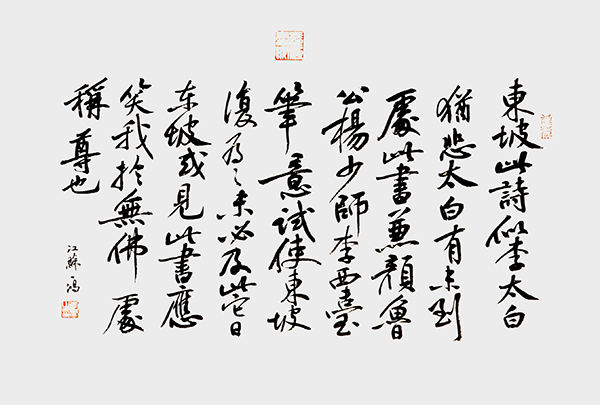 東坡此詩似李太白
猶恐太白有未到
處此書兼顏魯
公楊少師李西臺
筆意試使東坡
復為之未必及此它日
东坡或見此書應
笑我於無佛處
稱尊也
江蘇